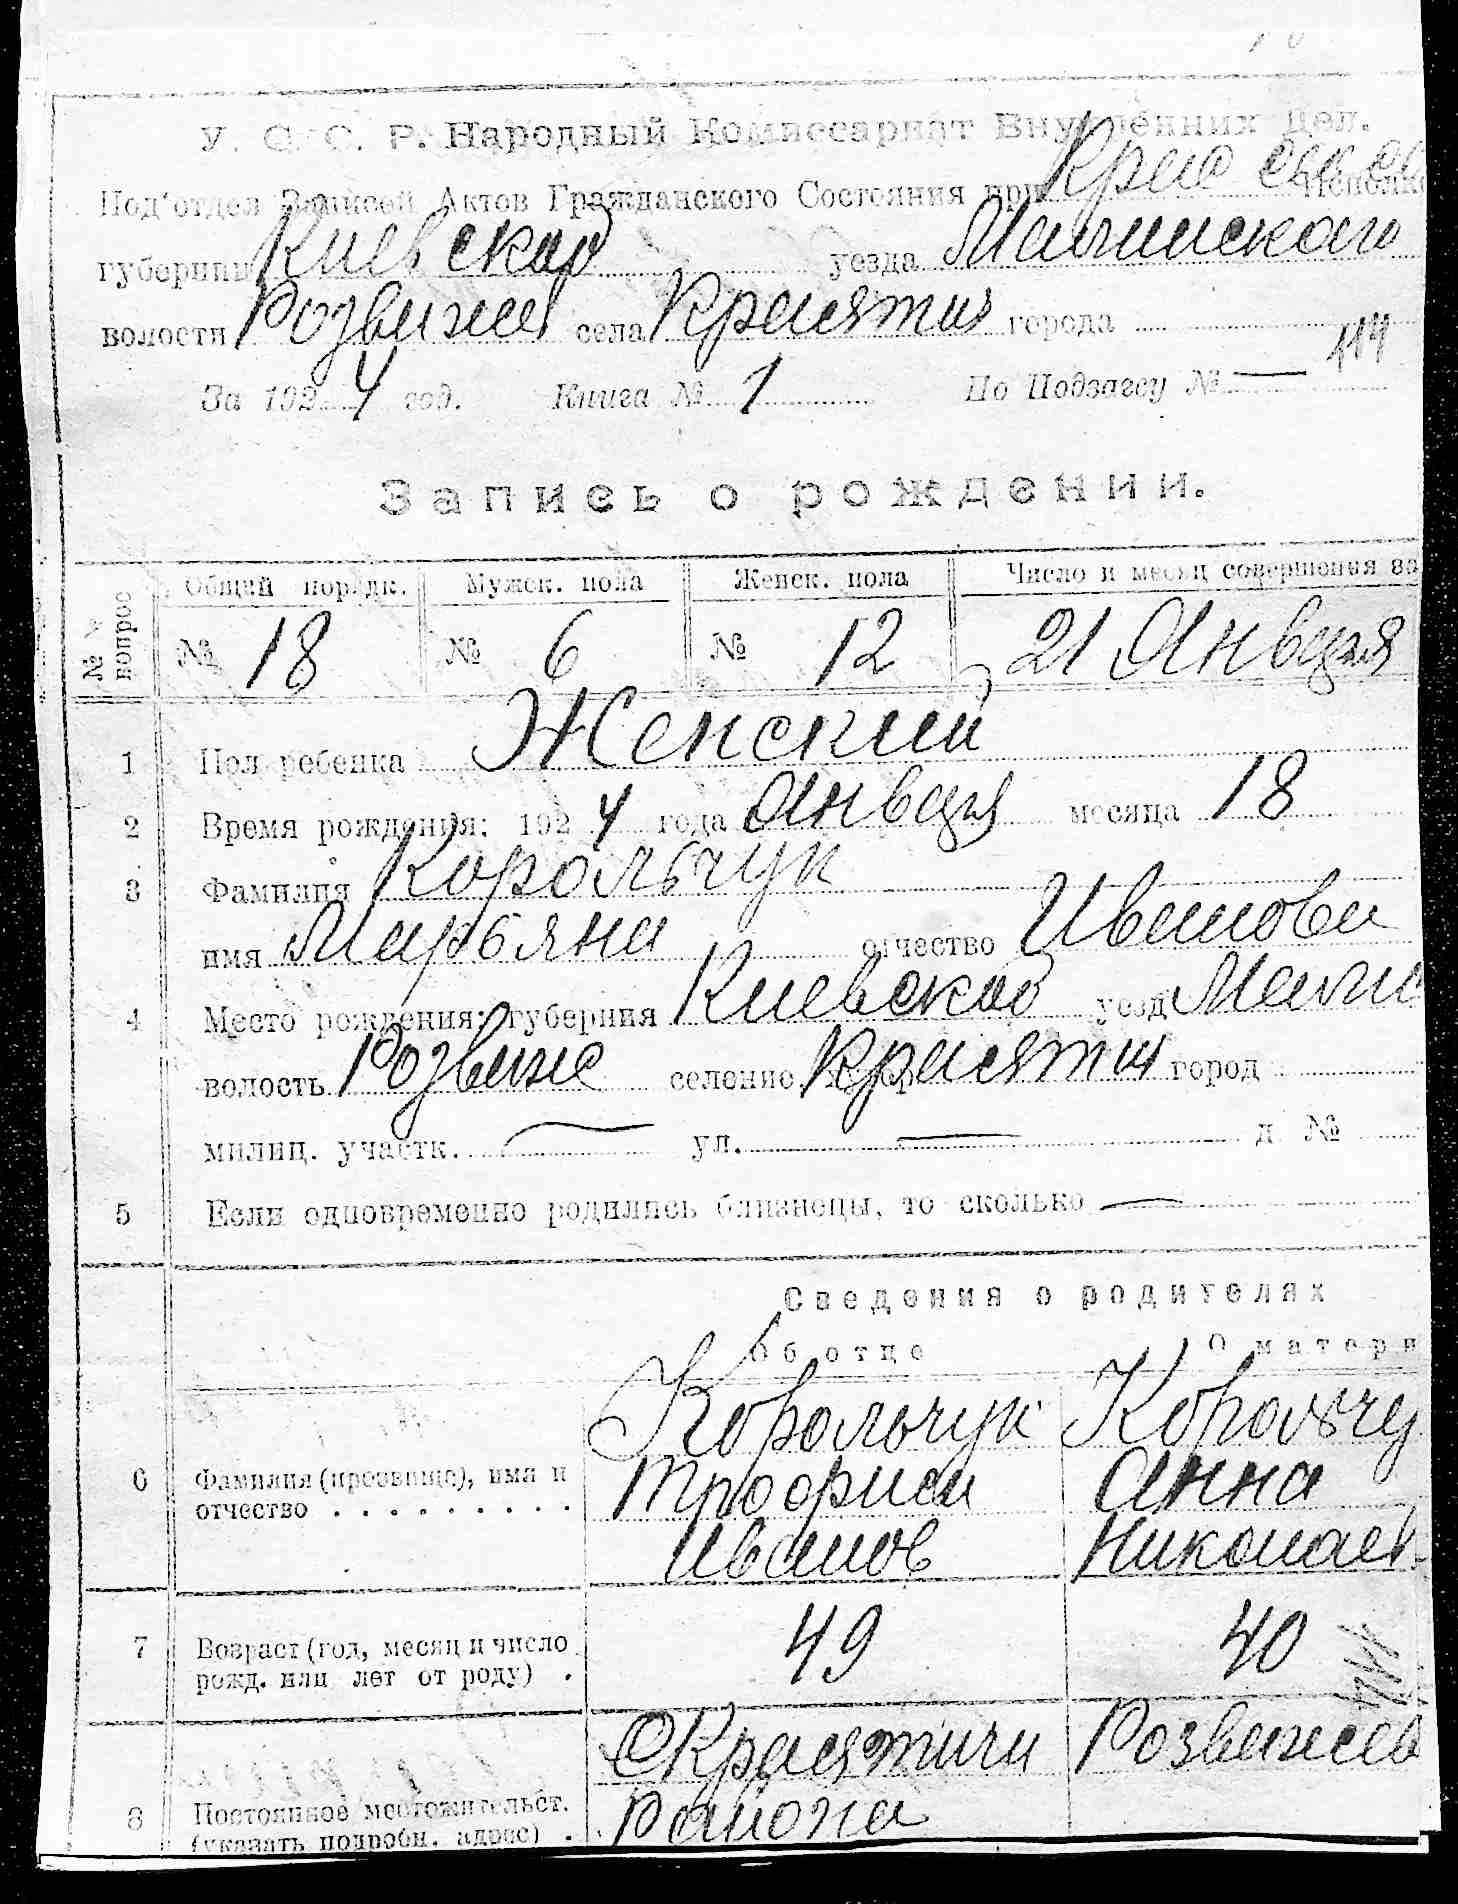 У. С. С. Р. Народный Комиссариат Внутренних Дел.
Под'отдел Записей Актов Гражданского Состояния при Исполк
губернии Киевской уезда Малинского
волости Розваже села Краятичи города
За 1924 год. Книга № 1 По Подзагсу № —
Запись о рождении.
№ вопрос Общий порядк. Мужск. пола Женск. пола Число и месяц совершения за
№ 18 № 6 № 12 21 Января
1 Пол ребенка Женский
2 Время рождения: 1924 года Января месяца 18
3 Фамилия Корольчук
имя Марьяна отчество Иванова
4 Место рождения: губерния Киевской уезд Мали
волость Розваже селение Краятичи город
милиц. участк. — ул. — д №
5 Если одновременно родились близнецы, то сколько —
Сведения о родителях
Об отце О матери
Корольчук Корольчу
6 Фамилия (прозвище), имя и отчество . . . . . . . . . Трофим Анна
Иванов Николаев
7 Возраст (год, месяц и число 49 40
рожд. или лет от роду) .
с Краятичи Розважев
8 Постоянное местожительст. Района
(указать подробн. адрес) .